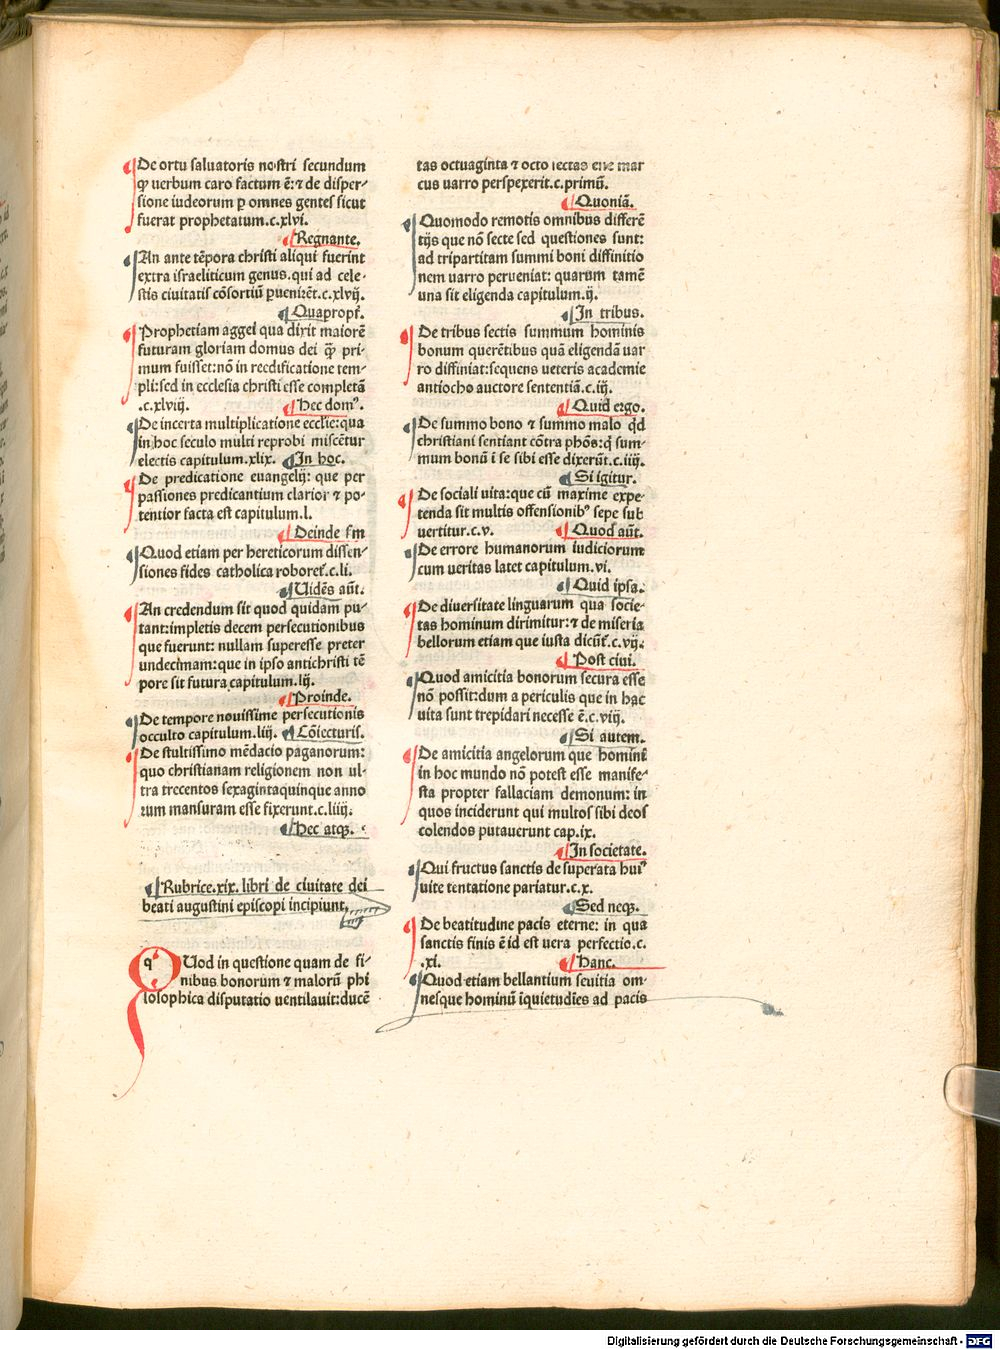 De ortu saluatoris nostri secundum
ꝙ uerbum caro factum ē: ⁊ de disper-
sione iudeorum ꝑ omnes gentes sicut
fuerat prophetatum.c.xlvi.
Regnante.
An ante tēpora christi aliqui fuerint
extra israeliticum genus.qui ad cele-
stis ciuitatis cōsortiū ꝑuenirēt.c.xlvij.
Quapropt̄.
Prophetiam aggei qua dixit maiorē
futuram gloriam domus dei q̄ꝫ pri-
mum fuisset:nō in reedificatione tem-
pli:sed in ecclesia christi esse completā
.c.xlviij.
Hec domꝰ.
De incerta multiplicatione eccl̄ie:qua
in hoc seculo multi reprobi miscētur
electis capitulum.xlix. In hoc.
De predicatione euangelij: que per
passiones predicantium clarior ⁊ po-
tentior facta est capitulum.l.
Deinde fm
Quod etiam per hereticorum dissen-
siones fides catholica roboret̄.c.li.
Uidēs aūt.
An credendum sit quod quidam pu-
tant:impletis decem persecutionibus
que fuerunt: nullam superesse preter
undecimam:que in ipso antichristi tē
pore sit futura capitulum.lij.
Proinde.
De tempore nouissime persecutionis
occulto capitulum.liij. Cōiecturis.
De stultissimo mēdacio paganorum:
quo christianam religionem non ul-
tra trecentos sexagintaquinque anno
rum mansuram esse fixerunt.c.liiij.
Hec atqꝫ.
Rubrice.xix. libri de ciuitate dei
beati augustini episcopi incipiunt.
q QUod in questione quam de fi-
nibus bonorum ⁊ malorū phi
losophica disputatio uentilauit:ducē
tas octuaginta ⁊ octo sectas esse mar
cus uarro perspexerit.c.primū.
Quoniā.
Quomodo remotis omnibus differē
tijs que nō secte sed questiones sunt:
ad tripartitam summi boni diffinitio
nem uarro perueniat: quarum tamē
una sit eligenda capitulum.ij.
In tribus.
De tribus sectis summum hominis
bonum querētibus quā eligendā uar
ro diffiniat:sequens ueteris academie
antiocho auctore sententiā.c.iij.
Quid ergo.
De summo bono ⁊ summo malo q̄d
christiani sentiant cōtra ph̄os:q̄ sum-
mum bonū ī se sibi esse dixerūt.c.iiij.
Si igitur.
De sociali uita:que cū maxime expe-
tenda sit multis offensionibꝰ sepe sub
uertitur.c.v.
Quod aūt.
De errore humanorum iudiciorum
cum ueritas latet capitulum.vi.
Quid ipsa.
De diuersitate linguarum qua socie-
tas hominum dirimitur:⁊ de miseria
bellorum etiam que iusta dicūt̄.c.vij.
Post ciui.
Quod amicitia bonorum secura esse
nō possit:dum a periculis que in hac
uita sunt trepidari necesse ē.c.viij.
Si autem.
De amicitia angelorum que homini
in hoc mundo nō potest esse manife-
sta propter fallaciam demonum: in
quos inciderunt qui multos sibi deos
colendos putauerunt cap.ix.
In societate.
Qui fructus sanctis de superata huiꝰ
uite tentatione pariatur.c.x.
Sed neqꝫ.
De beatitudine pacis eterne: in qua
sanctis finis ē id est uera perfectio.c.
.xi.
Hanc.
Quod etiam bellantium seuitia om-
nesque hominū īquietudīes ad pacis
Digitalisierung gefördert durch die Deutsche Forschungsgemeinschaft - DFG